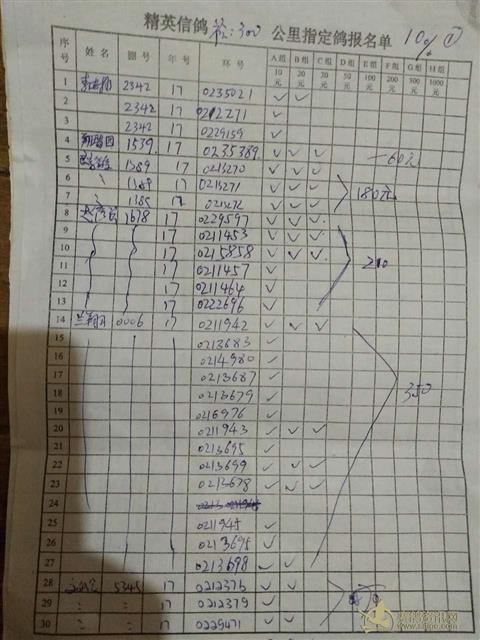 精英信鸽 300 公里指定鸽报名单 10% ①
序号 姓名 圈号 年号 环号 A组10元 B组20元 C组30元 D组50元 E组100元 F组200元 G组300元 H组1000元
1 2342 17 0235021 ✓ ✓
2 2342 17 0212271 ✓
3 2342 17 0229159 ✓
4 1539. 17 0235389 ✓ ✓ ✓ 一60元
5 1389 17 0213270 ✓ ✓ ✓
6 〃 1389 17 0213271 ✓ ✓ ✓ 180元
7 〃 1389 17 0213272 ✓ ✓ ✓
8 1678 17 0229597 ✓ ✓ ✓
9 17 0211453 ✓ ✓ ✓
10 17 0215858 ✓ ✓ ✓ 210
11 17 0211457 ✓
12 17 0211464 ✓
13 17 0222696 ✓
14 0006 17 0211942 ✓ ✓ ✓
15 0213683 ✓
16 0214980 ✓
17 0213687 ✓
18 0213679 ✓ 350
19 0216976 ✓
20 0211943 ✓ ✓ ✓
21 0213695 ✓
22 0213699 ✓ ✓ ✓
23 0213678 ✓ ✓ ✓
24
25 0211945 ✓
26 0213695 ✓
27 0213698 ✓ ✓ ✓
28 5345 17 0212376 ✓ ✓ ✓
29 〃 〃 17 0212379 ✓
30 〃 〃 17 0229471 ✓